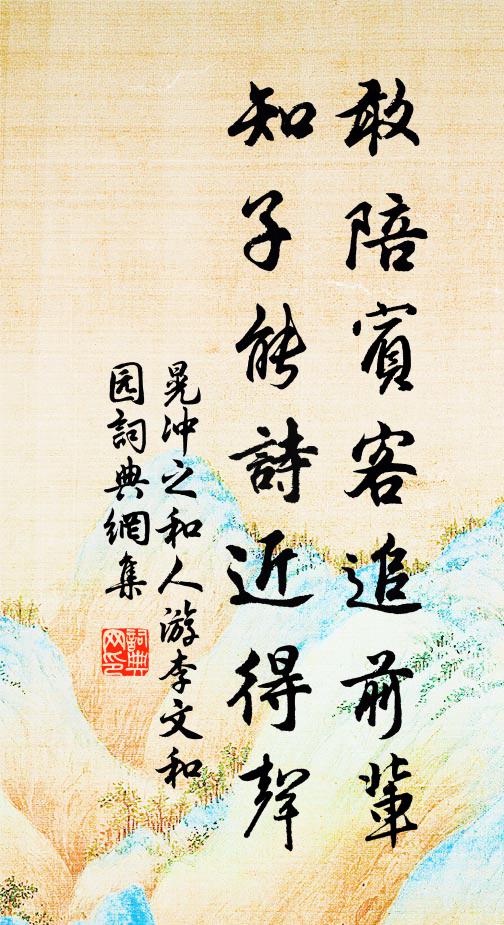 敢陪賓客追前輩
知子能詩近得聲
晃沖之和人游李文和
园詞典網集
詞典
网印